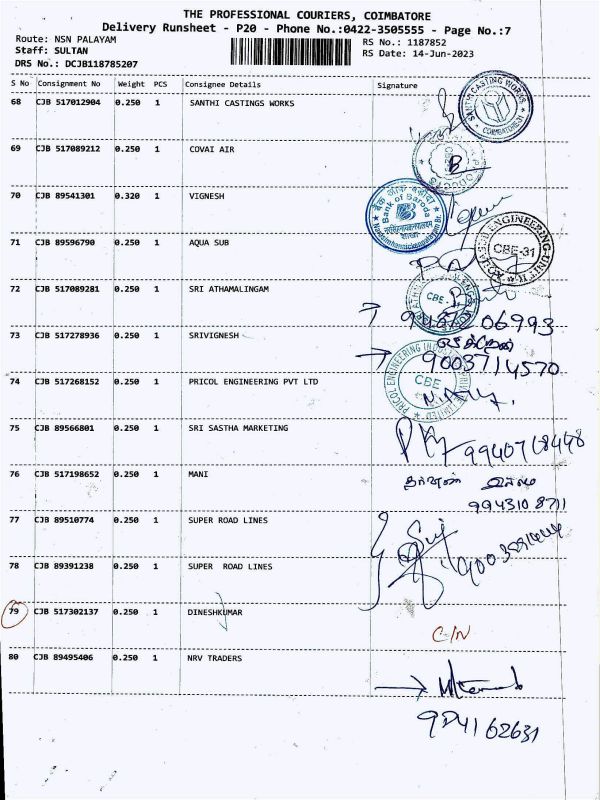 THE PROFESSIONAL COURIERS, COIMBATORE
Delivery Runsheet - P20 - Phone No.:0422-3505555 - Page No.:7
Route: NSN PALAYAM
RS No.: 1187852
Staff: SULTAN
RS Date: 14-Jun-2023
DRS No.: DCJB118785207
S No Consignment No Weight PCS Consignee Details Signature
68 CJB 517012904 0.250 1 SANTHI CASTINGS WORKS
SANTHI CASTING WORKS
COIMBATORE-31
69 CJB 517089212 0.250 1 COVAI AIR
70 CJB 89541301 0.320 1 VIGNESH
Bank of Baroda
71 CJB 89596790 0.250 1 AQUA SUB
AQUASUB ENGINEERING-UNIT
CBE-31
72 CJB 517089281 0.250 1 SRI ATHAMALINGAM
06993
73 CJB 517278936 0.250 1 SRIVIGNESH
9003714570
74 CJB 517268152 0.250 1 PRICOL ENGINEERING PVT LTD
PRICOL ENGINEERING
CBE
75 CJB 89566801 0.250 1 SRI SASTHA MARKETING
76 CJB 517198652 0.250 1 MANI
9943108711
77 CJB 89510774 0.250 1 SUPER ROAD LINES
78 CJB 89391238 0.250 1 SUPER ROAD LINES
79 CJB 517302137 0.250 1 DINESHKUMAR
C/N
80 CJB 89495406 0.250 1 NRV TRADERS